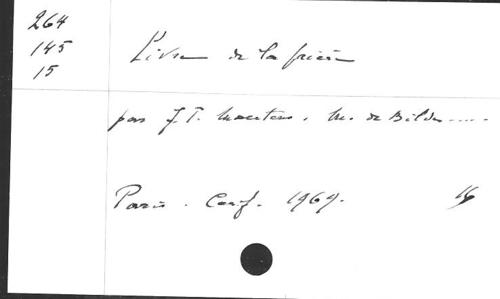 264
145
15
Livre de la prière
par J.T. Maertens, M. de Bilde ....
Paris. Cerf. 1969.